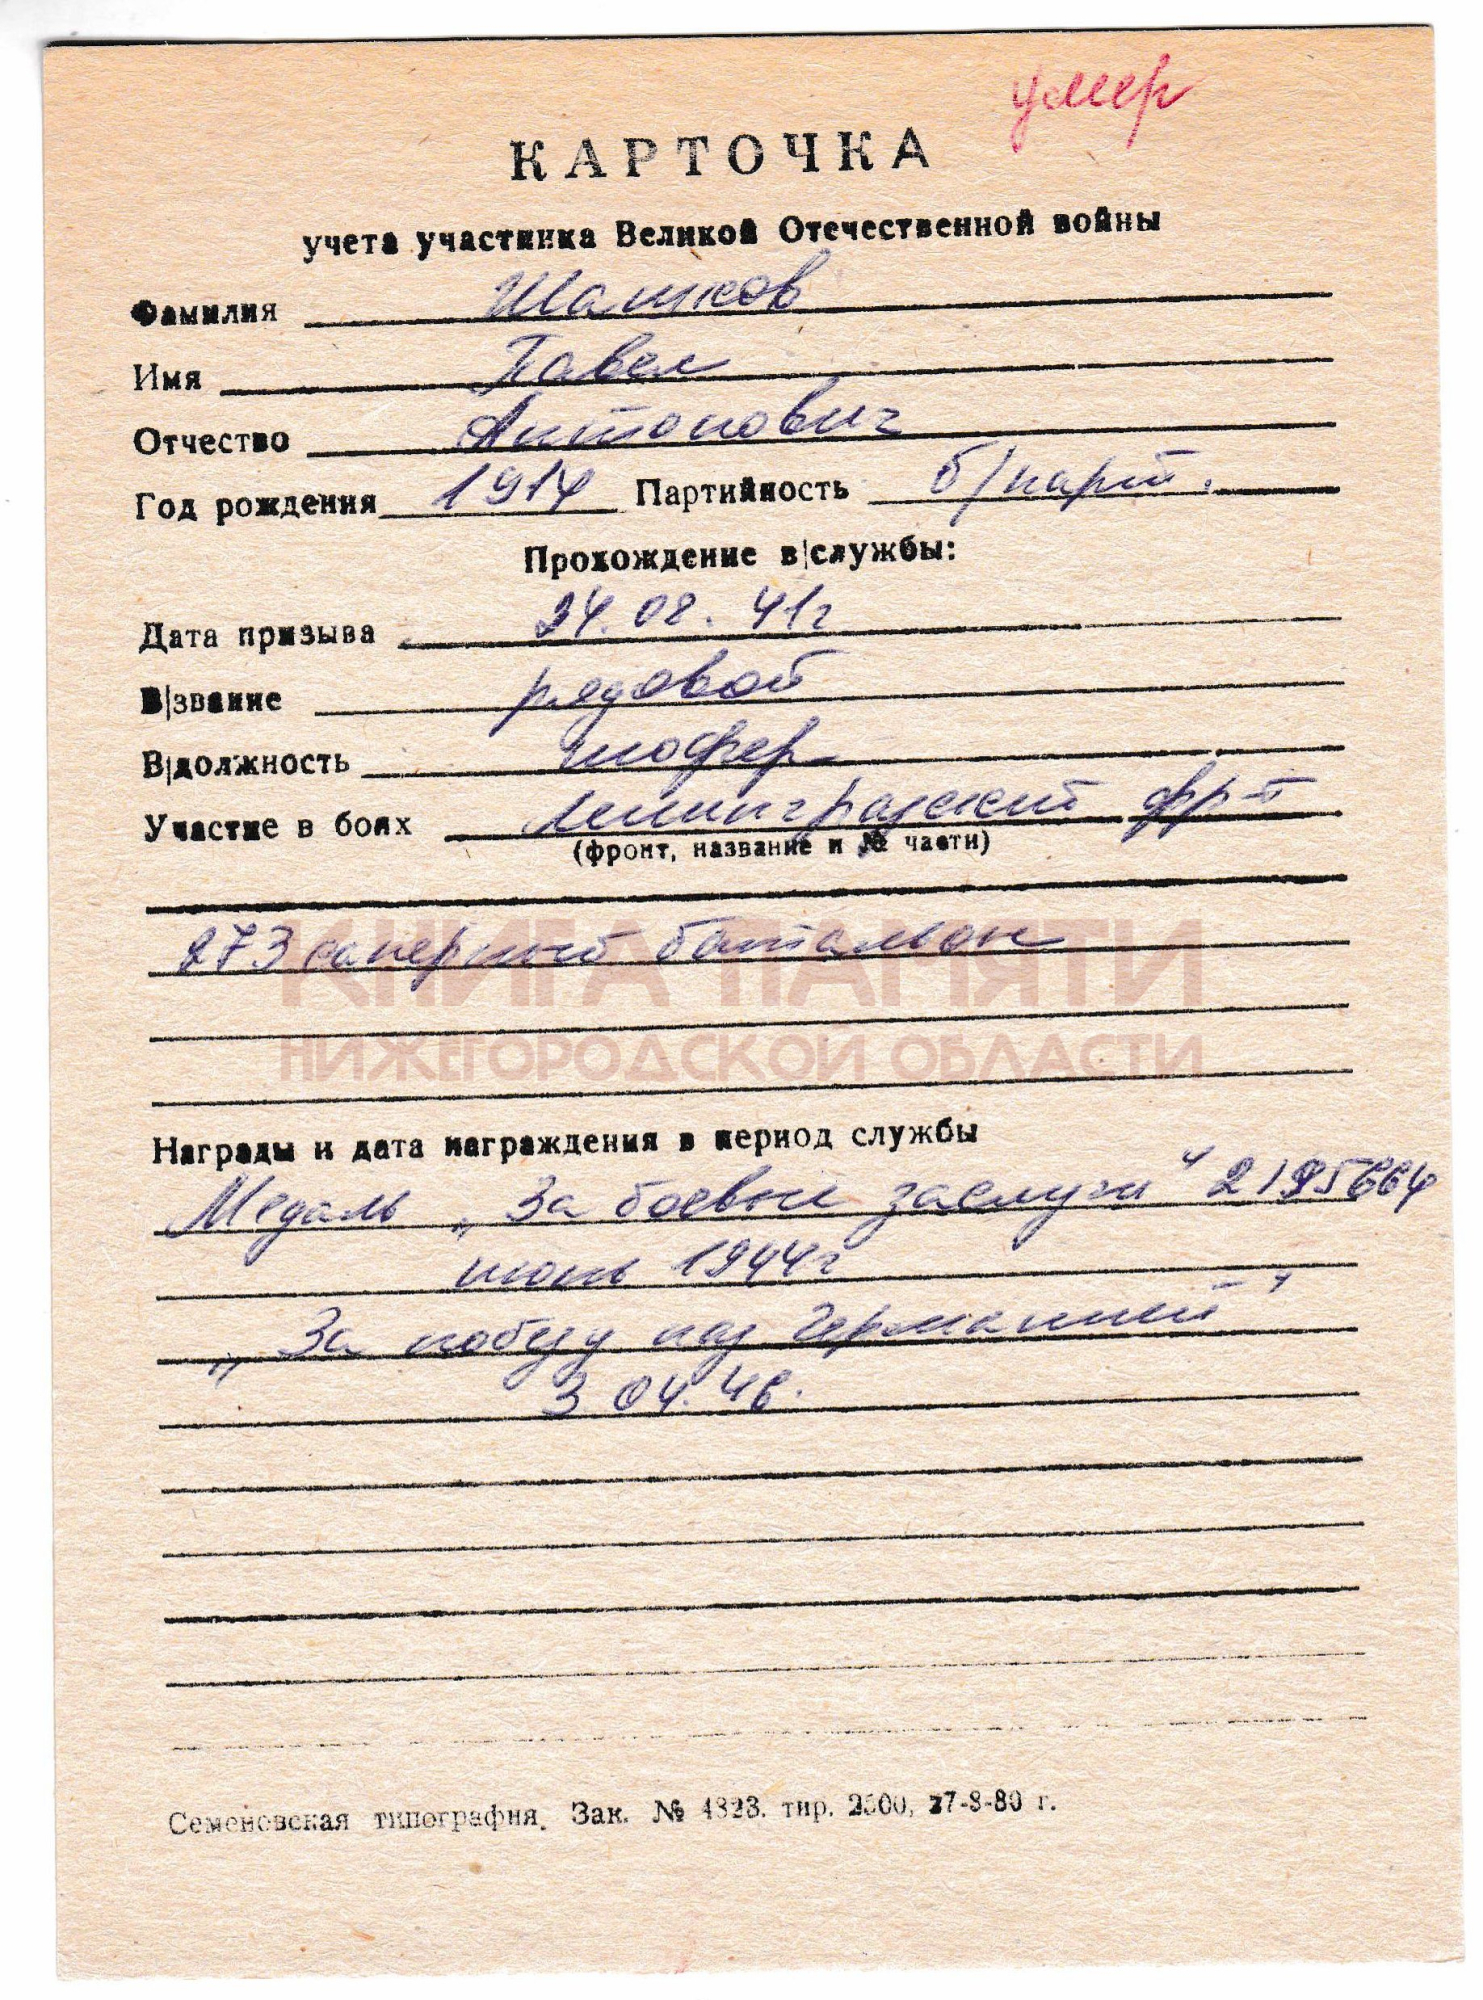 умер
КАРТОЧКА
учета участника Великой Отечественной войны
Фамилия Шашков
Имя Павел
Отчество Антонович
Год рождения 1914 Партийность б/парт.
Прохождение в|службы:
Дата призыва 24.08.41г
В|звание рядовой
В|должность шофер
Участие в боях Ленинградский фр-т
(фронт, название и № части)
273 саперный батальон
КНИГА ПАМЯТИ
НИЖЕГОРОДСКОЙ ОБЛАСТИ
Награды и дата награждения в период службы
Медаль „За боевые заслуги"
июнь 1944г
„За победу над Германией"
3 04.46.
Семеновская типография. Зак. № 4823. тир. 2500, 27-8-80 г.